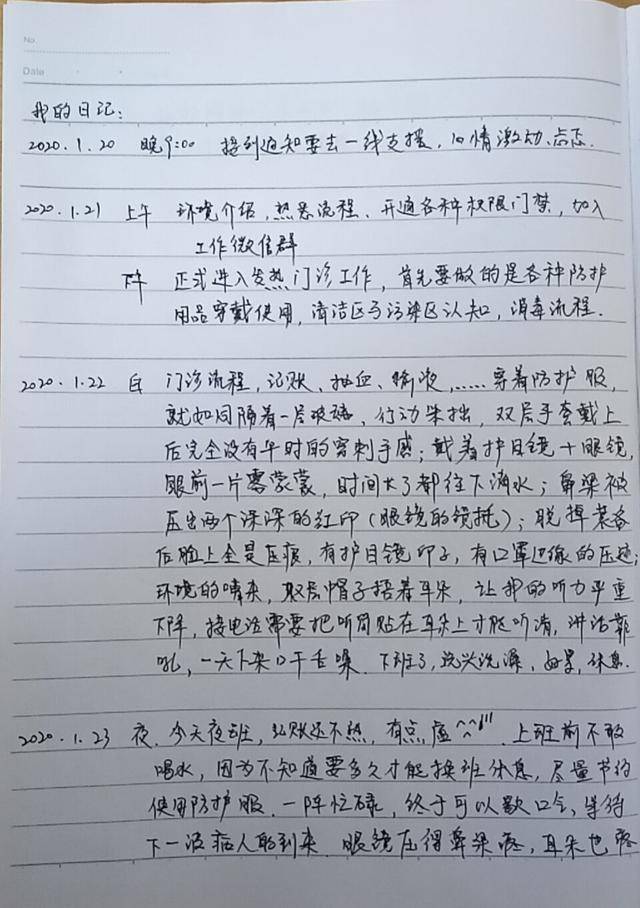 No.
Date
我的日记:
2020.1.20 晚9:00 接到通知要去一线支援,心情激动、忐忑.
2020.1.21 上午 环境介绍,熟悉流程、开通各种权限门禁,加入
工作微信群
下午 正式进入发热门诊工作,首先要做的是各种防护
用品穿戴使用,清洁区与污染区认知,消毒流程.
2020.1.22 白 门诊流程,记账、抽血、输液,……穿着防护服,
就如同隔着一层玻璃,行动笨拙,双层手套戴上
后完全没有平时的穿刺手感;戴着护目镜+眼镜,
眼前一片雾蒙蒙,时间长了都往下滴水;鼻梁被
压出两个深深的红印(眼镜的镜托);脱掉装备
后脸上全是压痕,有护目镜印子,有口罩边缘的压迹;
环境的嘈杂,双层帽子捂着耳朵,让我的听力严重
下降,接电话需要把听筒贴在耳朵上才能听清,讲话靠
吼,一天下来口干舌噪.下班了,洗头洗澡,好累,休息.
2020.1.23 夜.今天夜班,记账还不熟,有点虚^^ .上班前不敢
喝水,因为不知道要多久才能换班休息,尽量节约
使用防护服.一阵忙碌,终于可以歇口气,等待
下一波病人的到来.眼镜压得鼻梁疼,耳朵也疼